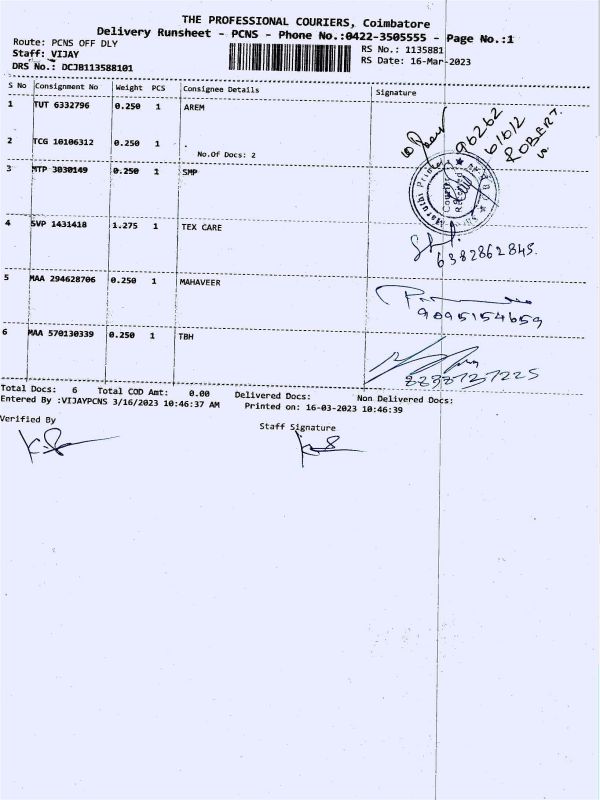 THE PROFESSIONAL COURIERS, Coimbatore
Delivery Runsheet - PCNS - Phone No.:0422-3505555 - Page No.:1
Route: PCNS OFF DLY
RS No.: 1135881
Staff: VIJAY
RS Date: 16-Mar-2023
DRS No.: DCJB113588101
S No Consignment No Weight PCS Consignee Details Signature
1 TUT 6332796 0.250 1 AREM
96262
61612
ROBERT.
2 TCG 10106312 0.250 1 .
No.Of Docs: 2
3 MTP 3030149 0.250 1 SMP
4 SVP 1431418 1.275 1 TEX CARE
6382862845.
5 MAA 294628706 0.250 1 MAHAVEER
9095154659
6 MAA 570130339 0.250 1 TBH
Total Docs: 6 Total COD Amt: 0.00 Delivered Docs: Non Delivered Docs:
Entered By :VIJAYPCNS 3/16/2023 10:46:37 AM Printed on: 16-03-2023 10:46:39
Verified By
Staff Signature